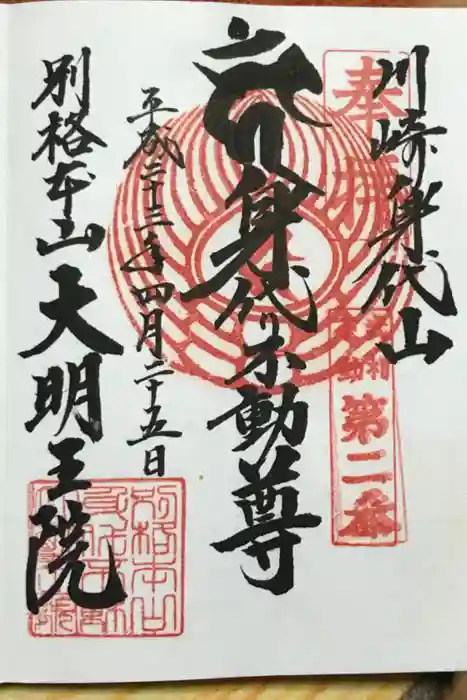 川崎身代山
奉拝
第二番
身代り不動尊
平成二十三年四月二十五日
別格本山 大明王院